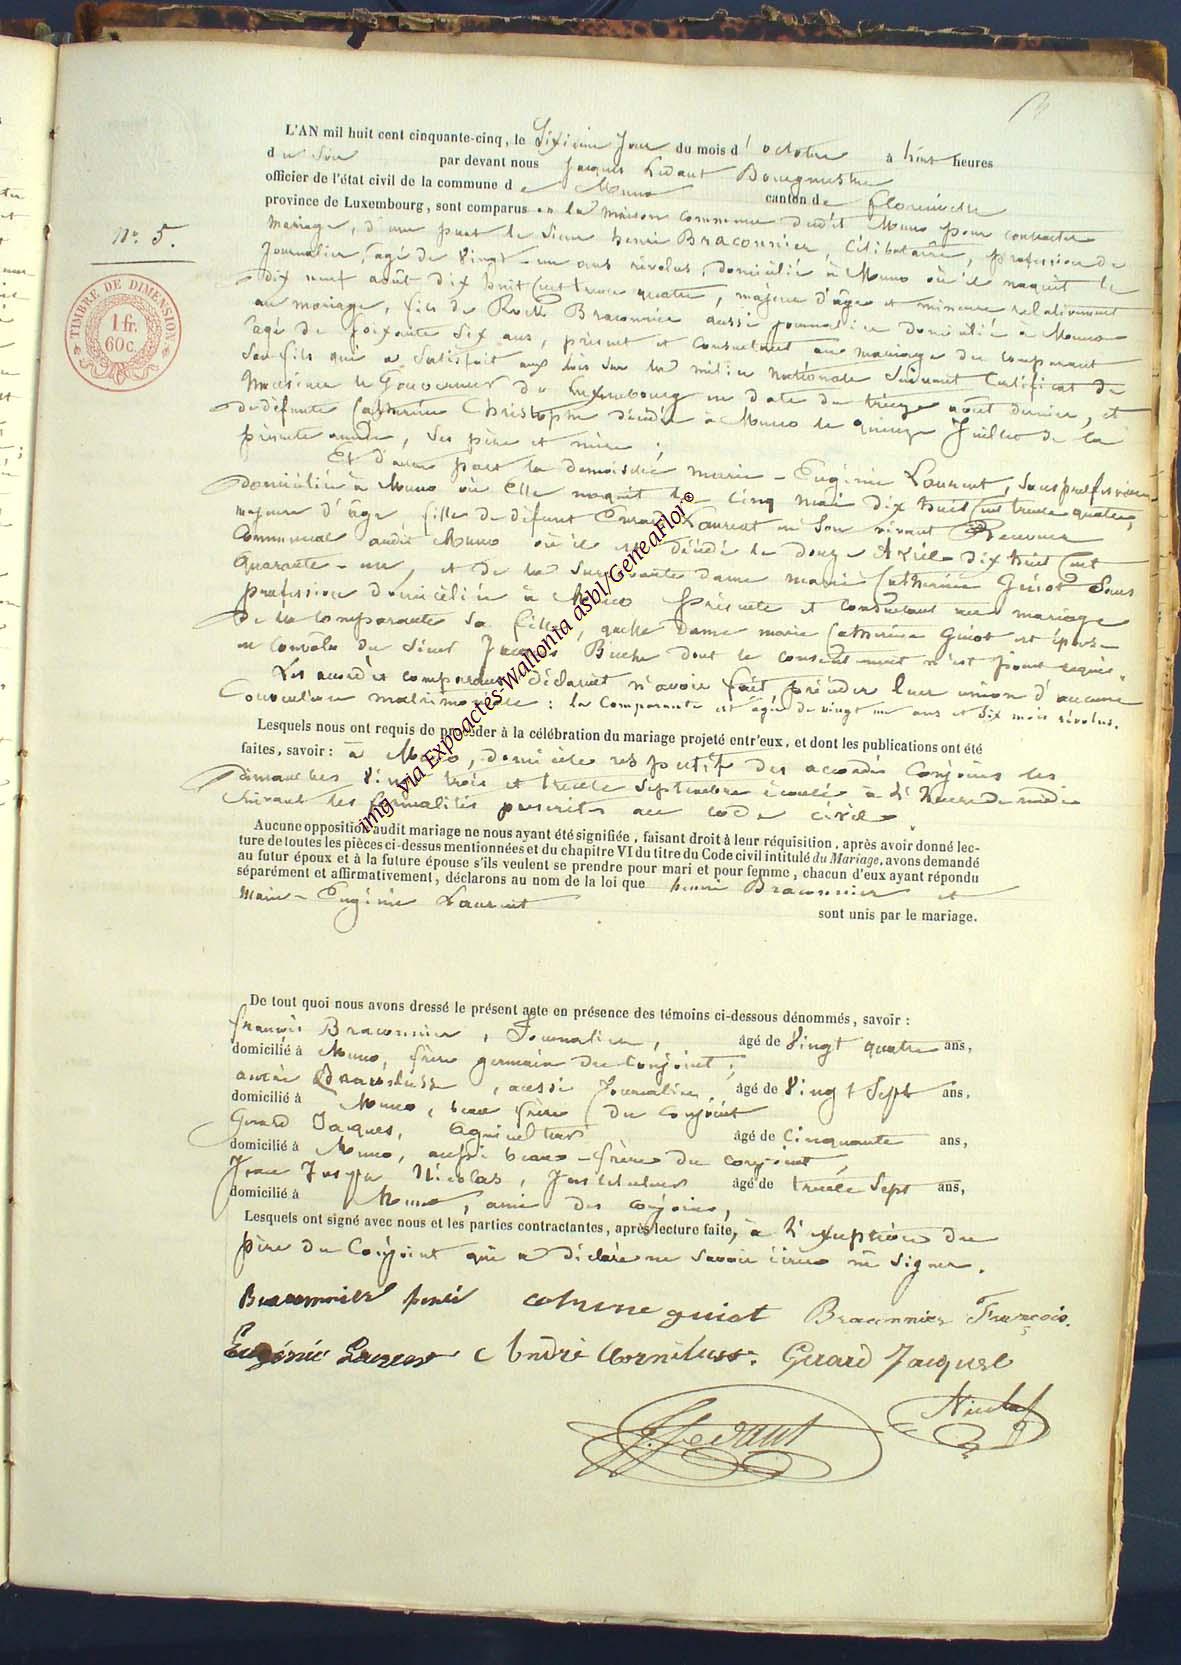 L'AN mil huit cent cinquante-cinq, le Sixième Jour du mois d'octobre à huit heures
du Soir par devant nous Jacques Ledant Bourgmestre
officier de l'état civil de la commune de Muno canton de Florenville
province de Luxembourg, sont comparus en la maison commune dudit Muno pour contracter
mariage, d'une part le Sieur henri Braconnier, Célibataire, profession de
Journalier, âgé de Vingt-un ans révolus, domicilié à Muno où il naquit le
dix neuf août dix huit Cent trente quatre, majeur d'âge et mineur relativement
au mariage, fils de Braconnier aussi journalier domicilié à Muno
âgé de Soixante Six ans, présent et Consentant au mariage du Comparant
Son fils qui a Satisfait aux lois sur la milice Nationale Suivant Certificat de
Monsieur le Gouverneur du Luxembourg en date du treize août dernier, et
de défunte Catherine Christophe décédée à Muno le quinze Juillet de la
présente année, Ses père et mère ;
Et d'autre part la demoiselle marie-Eugénie Laurent, Sans profession
domiciliée à Muno où Elle naquit le Cinq mai dix huit Cent trente quatre,
majeure d'âge fille de défunt Laurent en Son vivant Receveur
Communal audit Muno où il est décédé le douze Avril dix huit Cent
Quarante-un, et de la Survivante dame marie Catherine Guiot Sans
profession domiciliée à Muno présente et Consentant au mariage
de la Comparante Sa fille, quelle dame marie Catherine Guiot est épouse
en Convole du Sieur Jacques dont le Consentement n'est point requis.
Les accordés comparants déclarent n'avoir fait précéder leur union d'aucune
Convention matrimoniale : la Comparante est âgée de vingt un ans et Six mois révolus.
Lesquels nous ont requis de procéder à la célébration du mariage projeté entr'eux, et dont les publications ont été
faites, savoir : à Muno, domicile respectif des accordés Conjoins les
dimanches Vingt trois et trente Septembre écoulé à l'heure de midi
Suivant les formalités prescrites au code civil.
Aucune opposition audit mariage ne nous ayant été signifiée, faisant droit à leur réquisition, après avoir donné lec-
ture de toutes les pièces ci-dessus mentionnées et du chapitre VI du titre du Code civil intitulé du Mariage, avons demandé
au futur époux et à la future épouse s'ils veulent se prendre pour mari et pour femme, chacun d'eux ayant répondu
séparément et affirmativement, déclarons au nom de la loi que henri Braconnier et
Marie-Eugénie Laurent
sont unis par le mariage.
De tout quoi nous avons dressé le présent acte en présence des témoins ci-dessous dénommés, savoir :
François Braconnier, Journalier, âgé de Vingt quatre ans,
domicilié à Muno, frère germain du Conjoint ;
André , aussi Journalier, âgé de Vingt Sept ans,
domicilié à Muno, beau frère du Conjoint
Gerard Jacques, agriculteur âgé de Cinquante ans,
domicilié à Muno, aussi beau-frère du conjoint,
Jean Joseph Nicolas, Instituteur âgé de trente Sept ans,
domicilié à Muno, ami des conjoins,
Lesquels ont signé avec nous et les parties contractantes, après lecture faite, à l'exception du
père du Conjoint qui a déclaré ne savoir écrire ni Signer.
Braconnier henri Catherine guiot Braconnier François.
Eugénie Laurent André Gerard Jacques
J. Ledant Nicolas
N° 5.
TIMBRE DE DIMENSION
1 fr.
60 c.
img via Expoactes-Wallonia asbl/GeneaFloi®